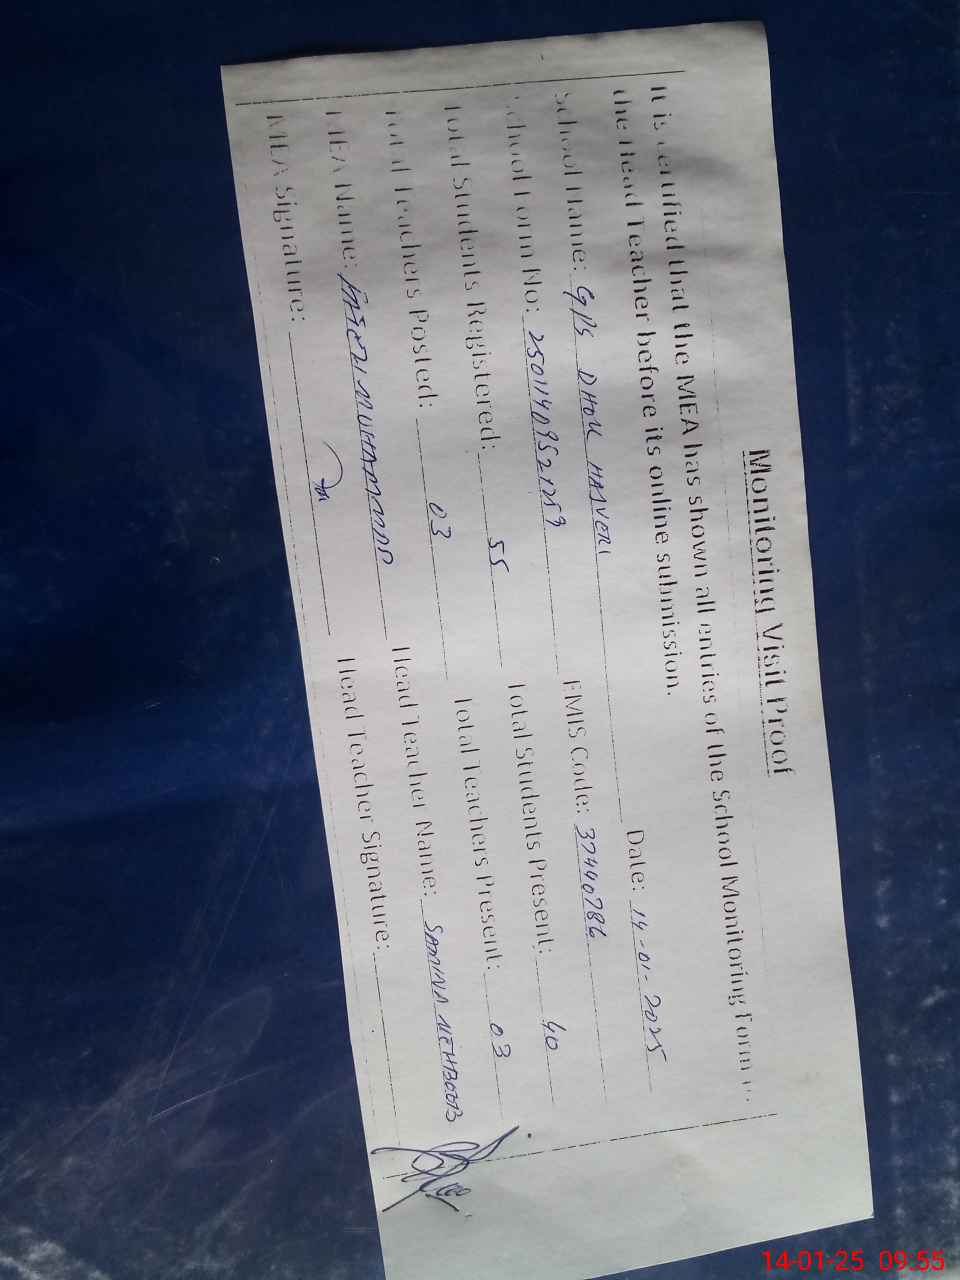 Monitoring Visit Proof
It is certified that the MEA has shown all entries of the School Monitoring Form
the Head Teacher before its online submission.
School Name: GPS DHOK HAJVERI Date: 14-01-2025
School Form No: EMIS Code: 37440786
Total Students Registered: 55 Total Students Present: 40
Total Teachers Posted: 03 Total Teachers Present: 03
MEA Name: MUHAMMAD Head Teacher Name: SAMINA MEHBOOB
MEA Signature: Head Teacher Signature:
14-01-25 09:55